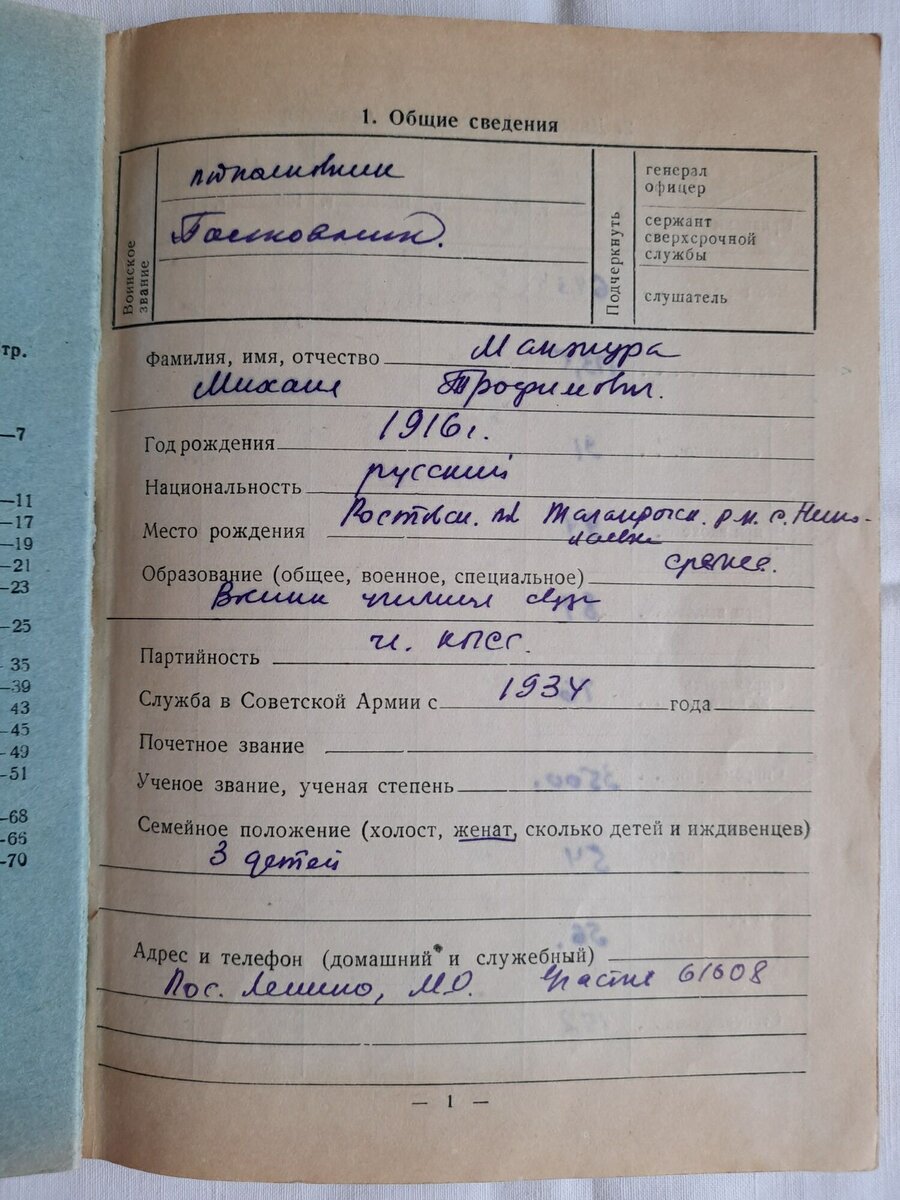 тр.
—7
—11
—17
—19
—21
—23
—25
35
—39
43
—45
—49
—51
—68
—66
—70
1. Общие сведения
Воинское звание
подполковник
Полковник.
Подчеркнуть
генерал
офицер
сержант
сверхсрочной
службы
слушатель
Фамилия, имя, отчество Манжура
Михаил Трофимович.
Год рождения 1916 г.
Национальность русский
Место рождения Ростовск. р-н. с. Нико-
лаевка
Образование (общее, военное, специальное) среднее.
училище
Партийность чл. КПСС.
Служба в Советской Армии с 1934 года
Почетное звание
Ученое звание, ученая степень
Семейное положение (холост, женат, сколько детей и иждивенцев)
3 детей
Адрес и телефон (домашний и служебный)
Пос. М.О. 61608
— 1 —